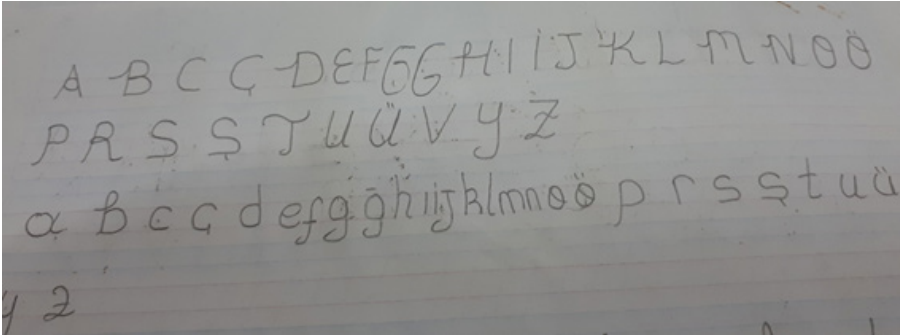 A B C Ç D E F G Ğ H I İ J K L M N O Ö
P R S Ş T U Ü V Y Z
a b c ç d e f g ğ h ı i j k l m n o ö p r s ş t u ü
y z